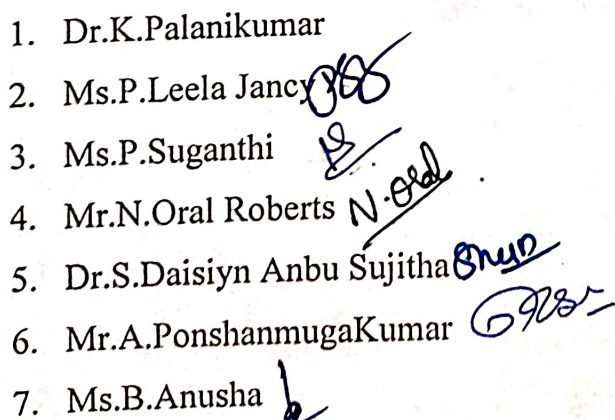 1. Dr.K.Palanikumar
2. Ms.P.Leela Jancy
3. Ms.P.Suganthi
4. Mr.N.Oral Roberts
5. Dr.S.Daisiyn Anbu Sujitha
6. Mr.A.PonshanmugaKumar
7. Ms.B.Anusha